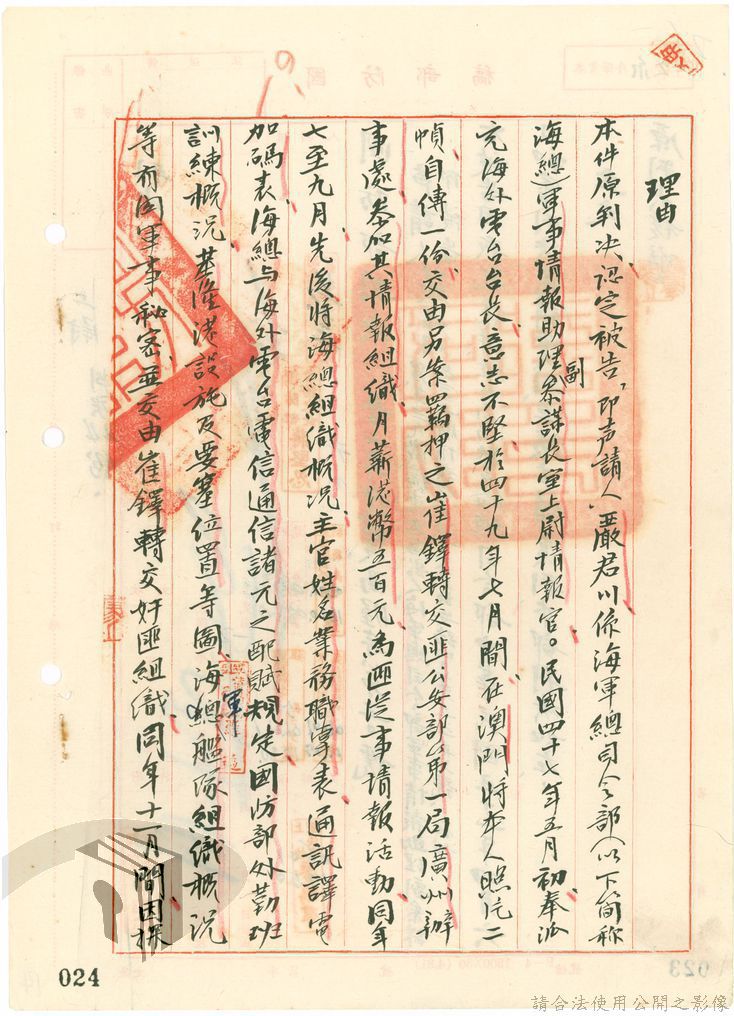 理由
本件原判决認定被告即声請人嚴君川係海軍總司令部(以下简称
海總)軍事情報助理副參謀長室上尉情報官。民國四十七年五月初奉派
充海外電台台長意志不堅於四十九年七月間在澳門將本人照片二
幀自傳一份交由另案羈押之崔鐸轉交匪公安部第一局廣州辦
事處參加其情報組織月薪港幣五百元為匪從事情報活動同年
七至九月先後將海總組織概况主官姓名業務職掌表通訊譯電
加碼表海總与海外電台電信通信諸元之配賦規定國防部外勤班
訓練概况基隆港設施及要塞位置等圖海軍總艦隊組織概况
等有関軍事秘密並交由崔鐸轉交奸匪組織同年十一月間因探
024
請合法使用公開之影像
國防部稿
023